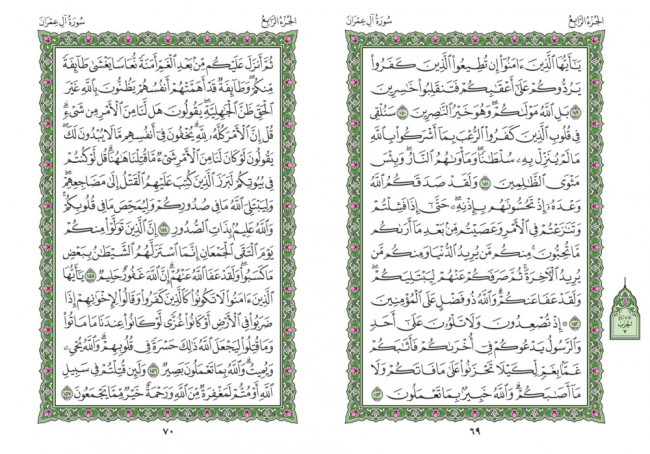 الجزء الرابع
سورة آل عمران
يَٰٓأَيُّهَا ٱلَّذِينَ ءَامَنُوٓا۟ إِن تُطِيعُوا۟ ٱلَّذِينَ كَفَرُوا۟
يَرُدُّوكُمْ عَلَىٰٓ أَعْقَٰبِكُمْ فَتَنقَلِبُوا۟ خَٰسِرِينَ
١٤٩ بَلِ ٱللَّهُ مَوْلَىٰكُمْ ۖ وَهُوَ خَيْرُ ٱلنَّٰصِرِينَ ١٥٠ سَنُلْقِى
فِى قُلُوبِ ٱلَّذِينَ كَفَرُوا۟ ٱلرُّعْبَ بِمَآ أَشْرَكُوا۟ بِٱللَّهِ
مَا لَمْ يُنَزِّلْ بِهِۦ سُلْطَٰنًا ۖ وَمَأْوَىٰهُمُ ٱلنَّارُ ۚ وَبِئْسَ
مَثْوَى ٱلظَّٰلِمِينَ ١٥١ وَلَقَدْ صَدَقَكُمُ ٱللَّهُ
وَعْدَهُۥٓ إِذْ تَحُسُّونَهُم بِإِذْنِهِۦ ۖ حَتَّىٰٓ إِذَا فَشِلْتُمْ
وَتَنَٰزَعْتُمْ فِى ٱلْأَمْرِ وَعَصَيْتُم مِّنۢ بَعْدِ مَآ أَرَىٰكُم
مَّا تُحِبُّونَ ۚ مِنكُم مَّن يُرِيدُ ٱلدُّنْيَا وَمِنكُم مَّن
يُرِيدُ ٱلْءَاخِرَةَ ۚ ثُمَّ صَرَفَكُمْ عَنْهُمْ لِيَبْتَلِيَكُمْ ۖ
وَلَقَدْ عَفَا عَنكُمْ ۗ وَٱللَّهُ ذُو فَضْلٍ عَلَى ٱلْمُؤْمِنِينَ
١٥٢ إِذْ تُصْعِدُونَ وَلَا تَلْوُۥنَ عَلَىٰٓ أَحَدٍ
وَٱلرَّسُولُ يَدْعُوكُمْ فِىٓ أُخْرَىٰكُمْ فَأَثَٰبَكُمْ
غَمًّۢا بِغَمٍّ لِّكَيْلَا تَحْزَنُوا۟ عَلَىٰ مَا فَاتَكُمْ وَلَا
مَآ أَصَٰبَكُمْ ۗ وَٱللَّهُ خَبِيرٌۢ بِمَا تَعْمَلُونَ ١٥٣
٦٩
الحزب
الجزء الرابع
سورة آل عمران
ثُمَّ أَنزَلَ عَلَيْكُم مِّنۢ بَعْدِ ٱلْغَمِّ أَمَنَةً نُّعَاسًا يَغْشَىٰ طَآئِفَةً
مِّنكُمْ ۖ وَطَآئِفَةٌ قَدْ أَهَمَّتْهُمْ أَنفُسُهُمْ يَظُنُّونَ بِٱللَّهِ غَيْرَ
ٱلْحَقِّ ظَنَّ ٱلْجَٰهِلِيَّةِ ۖ يَقُولُونَ هَل لَّنَا مِنَ ٱلْأَمْرِ مِن شَىْءٍ ۗ
قُلْ إِنَّ ٱلْأَمْرَ كُلَّهُۥ لِلَّهِ ۗ يُخْفُونَ فِىٓ أَنفُسِهِم مَّا لَا يُبْدُونَ لَكَ ۖ
يَقُولُونَ لَوْ كَانَ لَنَا مِنَ ٱلْأَمْرِ شَىْءٌ مَّا قُتِلْنَا هَٰهُنَا ۗ قُل لَّوْ كُنتُمْ
فِى بُيُوتِكُمْ لَبَرَزَ ٱلَّذِينَ كُتِبَ عَلَيْهِمُ ٱلْقَتْلُ إِلَىٰ مَضَاجِعِهِمْ ۖ
وَلِيَبْتَلِىَ ٱللَّهُ مَا فِى صُدُورِكُمْ وَلِيُمَحِّصَ مَا فِى قُلُوبِكُمْ ۗ
وَٱللَّهُ عَلِيمٌۢ بِذَاتِ ٱلصُّدُورِ ١٥٤ إِنَّ ٱلَّذِينَ تَوَلَّوْا۟ مِنكُمْ
يَوْمَ ٱلْتَقَى ٱلْجَمْعَانِ إِنَّمَا ٱسْتَزَلَّهُمُ ٱلشَّيْطَٰنُ بِبَعْضِ
مَا كَسَبُوا۟ ۖ وَلَقَدْ عَفَا ٱللَّهُ عَنْهُمْ ۗ إِنَّ ٱللَّهَ غَفُورٌ حَلِيمٌ ١٥٥ يَٰٓأَيُّهَا
ٱلَّذِينَ ءَامَنُوا۟ لَا تَكُونُوا۟ كَٱلَّذِينَ كَفَرُوا۟ وَقَالُوا۟ لِإِخْوَٰنِهِمْ إِذَا
ضَرَبُوا۟ فِى ٱلْأَرْضِ أَوْ كَانُوا۟ غُزًّى لَّوْ كَانُوا۟ عِندَنَا مَا مَاتُوا۟
وَمَا قُتِلُوا۟ لِيَجْعَلَ ٱللَّهُ ذَٰلِكَ حَسْرَةً فِى قُلُوبِهِمْ ۗ وَٱللَّهُ يُحْىِۦ
وَيُمِيتُ ۗ وَٱللَّهُ بِمَا تَعْمَلُونَ بَصِيرٌ ١٥٦ وَلَئِن قُتِلْتُمْ فِى سَبِيلِ
ٱللَّهِ أَوْ مُتُّمْ لَمَغْفِرَةٌ مِّنَ ٱللَّهِ وَرَحْمَةٌ خَيْرٌ مِّمَّا يَجْمَعُونَ ١٥٧
٧٠